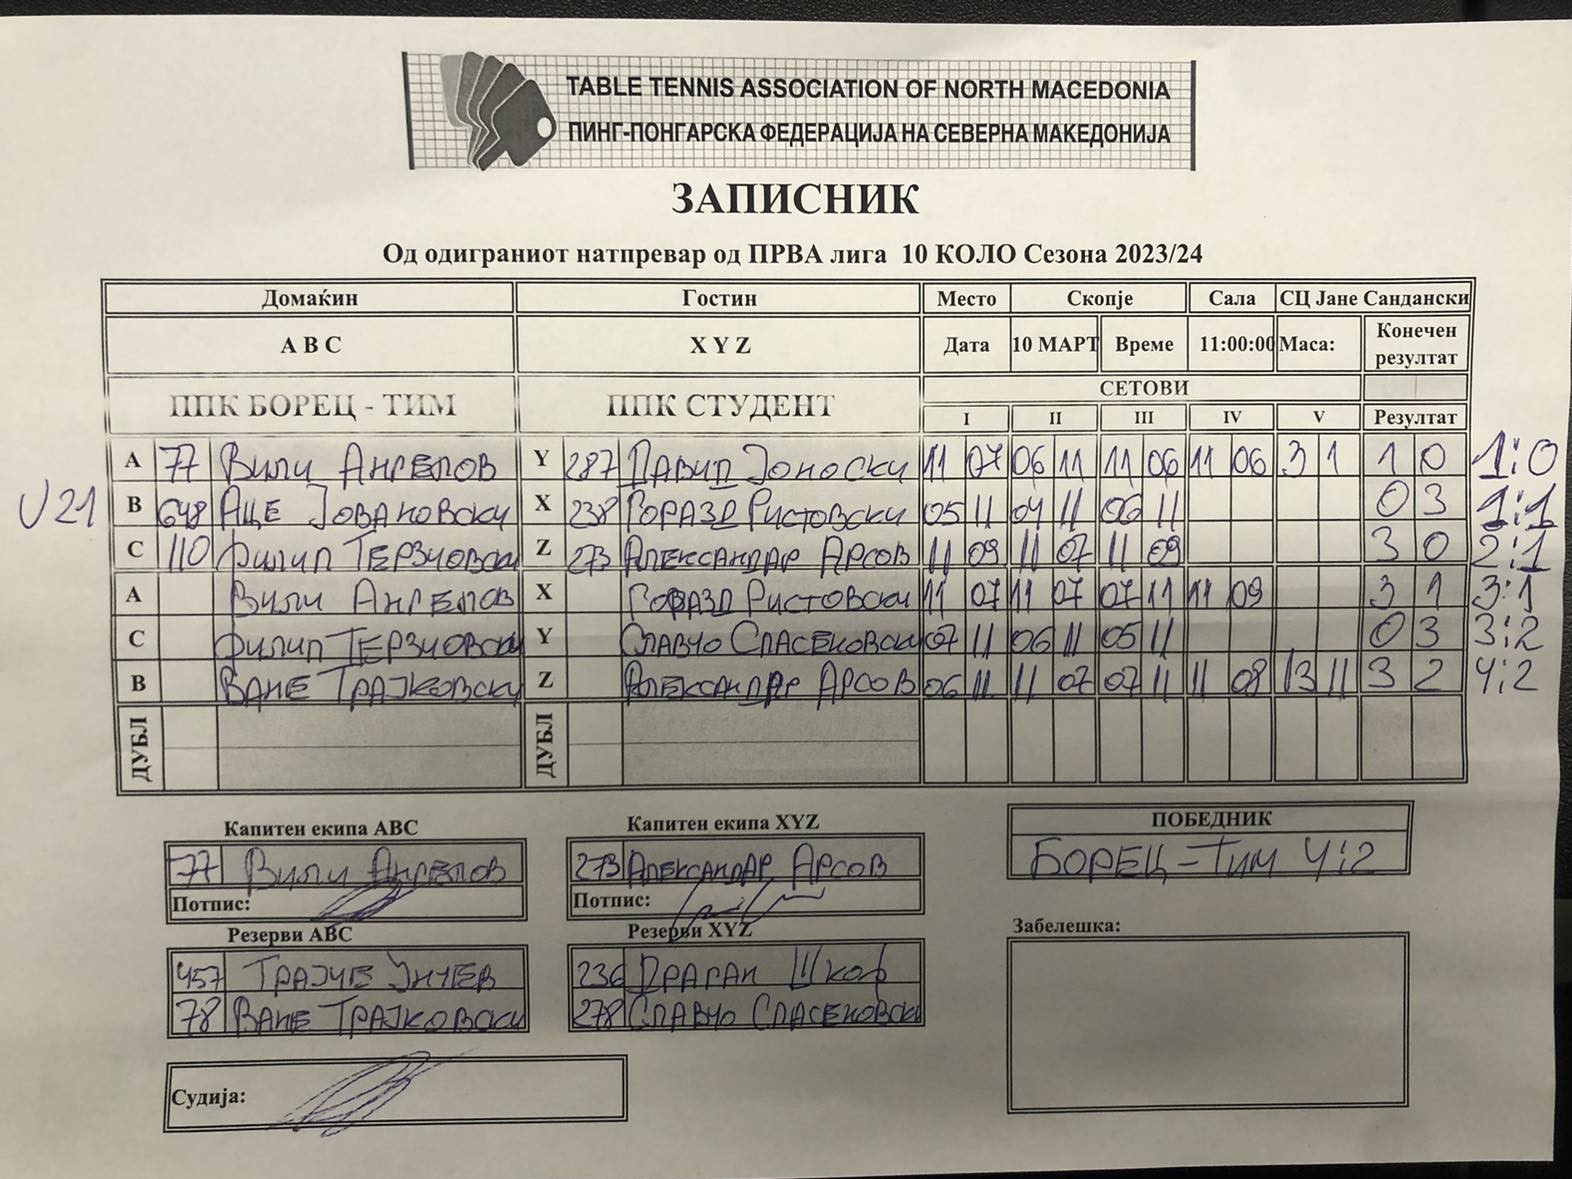 TABLE TENNIS ASSOCIATION OF NORTH MACEDONIA
ПИНГ-ПОНГАРСКА ФЕДЕРАЦИЈА НА СЕВЕРНА МАКЕДОНИЈА
ЗАПИСНИК
Од одиграниот натпревар од ПРВА лига 10 КОЛО Сезона 2023/24
Домаќин Гостин Место Скопје Сала СЦ Јане Сандански
A B C X Y Z Дата 10 МАРТ Време 11:00:00 Маса: Конечен резултат
ППК БОРЕЦ - ТИМ ППК СТУДЕНТ СЕТОВИ
I II III IV V Резултат
A 77 Вили Ангелов Y 287 Давид Јоноски 11 07 06 11 11 06 11 06 3 1 1 0 1:0
U21 B 648 Аце Јовановски X 238 Горазд Ристовски 05 11 04 11 06 11 0 3 1:1
C 110 Филип Терзиовски Z 273 Александар Арсов 11 09 11 07 11 09 3 0 2:1
A Вили Ангелов X Горазд Ристовски 11 07 11 07 07 11 11 09 3 1 3:1
C Филип Терзиовски Y Славчо Спасеновски 07 11 06 11 05 11 0 3 3:2
B Ване Трајковски Z Александар Арсов 06 11 11 07 07 11 11 08 13 11 3 2 4:2
ДУБЛ ДУБЛ
Капитен екипа ABC Капитен екипа XYZ ПОБЕДНИК
77 Вили Ангелов 273 Александар Арсов БОРЕЦ-ТИМ 4:2
Потпис: Потпис:
Резерви ABC Резерви XYZ Забелешка:
457 Трајче Јнчев 236 Драган Шкоф
78 Ване Трајковски 278 Славчо Спасеновски
Судија: